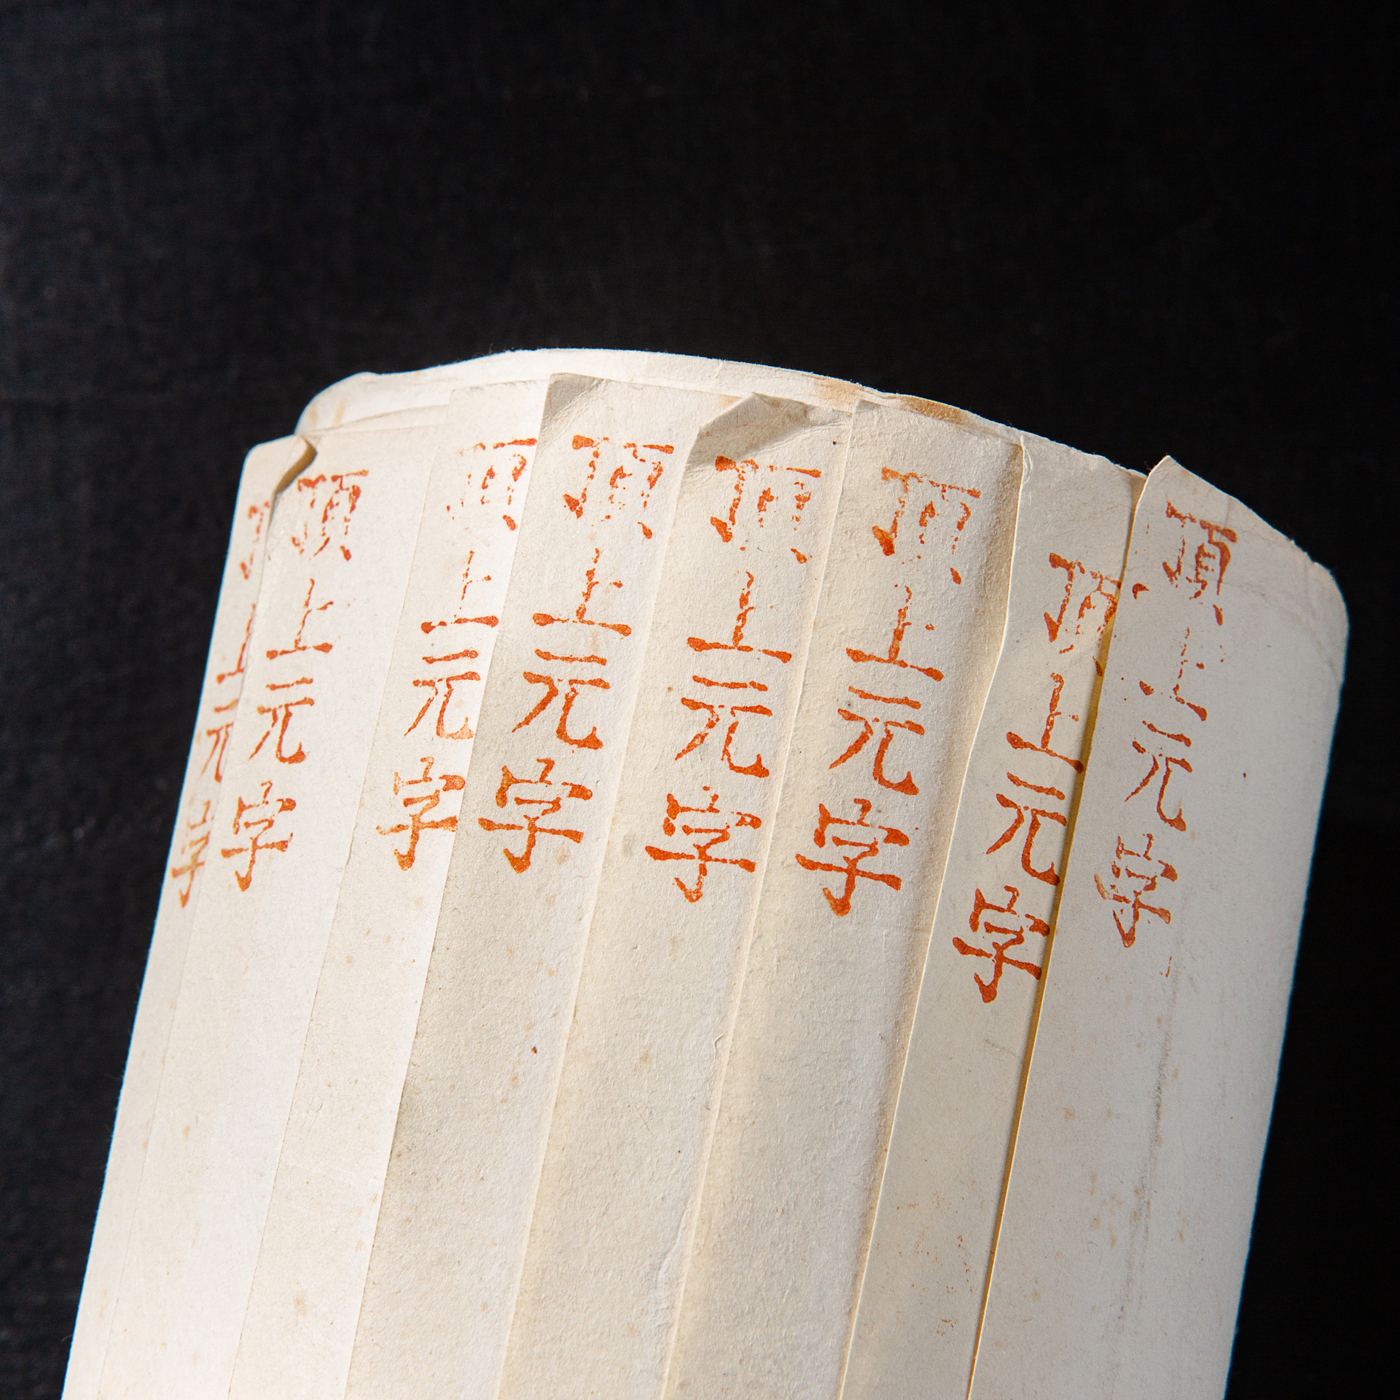 頂上元字
頂上元字
頂上元字
頂上元字
頂上元字
頂上元字
頂上元字
頂上元字